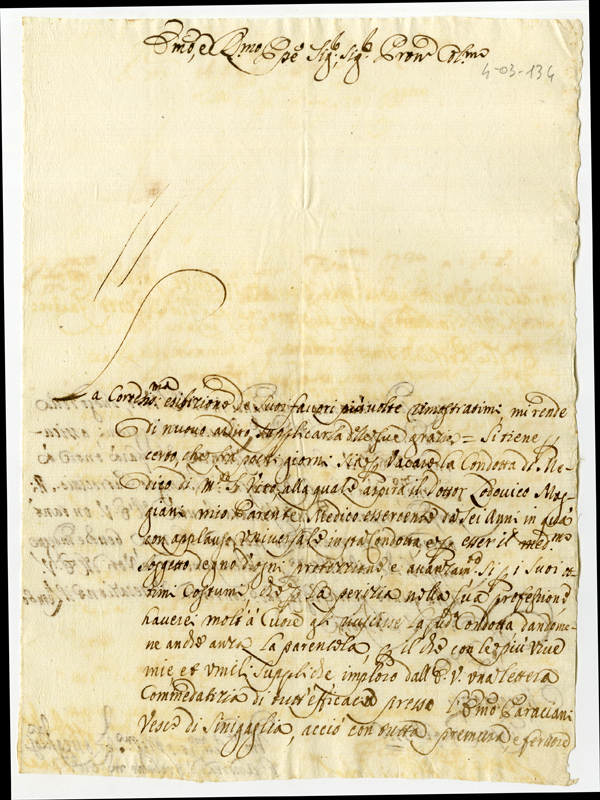 Emo, e Rmo Ppe Sig.r Sig.r Pron Col.mo
4-03-134
La Cortesis.ma esibizione de Suoi favori più volte rimostratimi mi rende
di nuovo ardito supplicarla delle sue grazie = Si tiene
certo, che frà pochi giorni sia p Vacare la Condotta di Me-
dico di M.te S. Vito, alla quale aspira il Dottor Lodovico Mag-
giani mio Parente, Medico esercente da sei Anni in quà
con applauso universale in Condotta, e p esser il med.mo
soggetto degno d'ogni protezzione e avanzam.to Sì p i suoi ot-
timi Costumi, che p la perizia nella sua professione
haverei molt'à Cuore gli riuscisse la sud.a Condotta, dandome-
ne anche anza la parentela, p il che con le più vive
mie et umili suppliche imploro dall'E.V. una lettera
Commendatizia di tutt'efficacia presso l'Emo Paraciani
Vesc.o di Sinigaglia, acciò con tutta premura e fervore